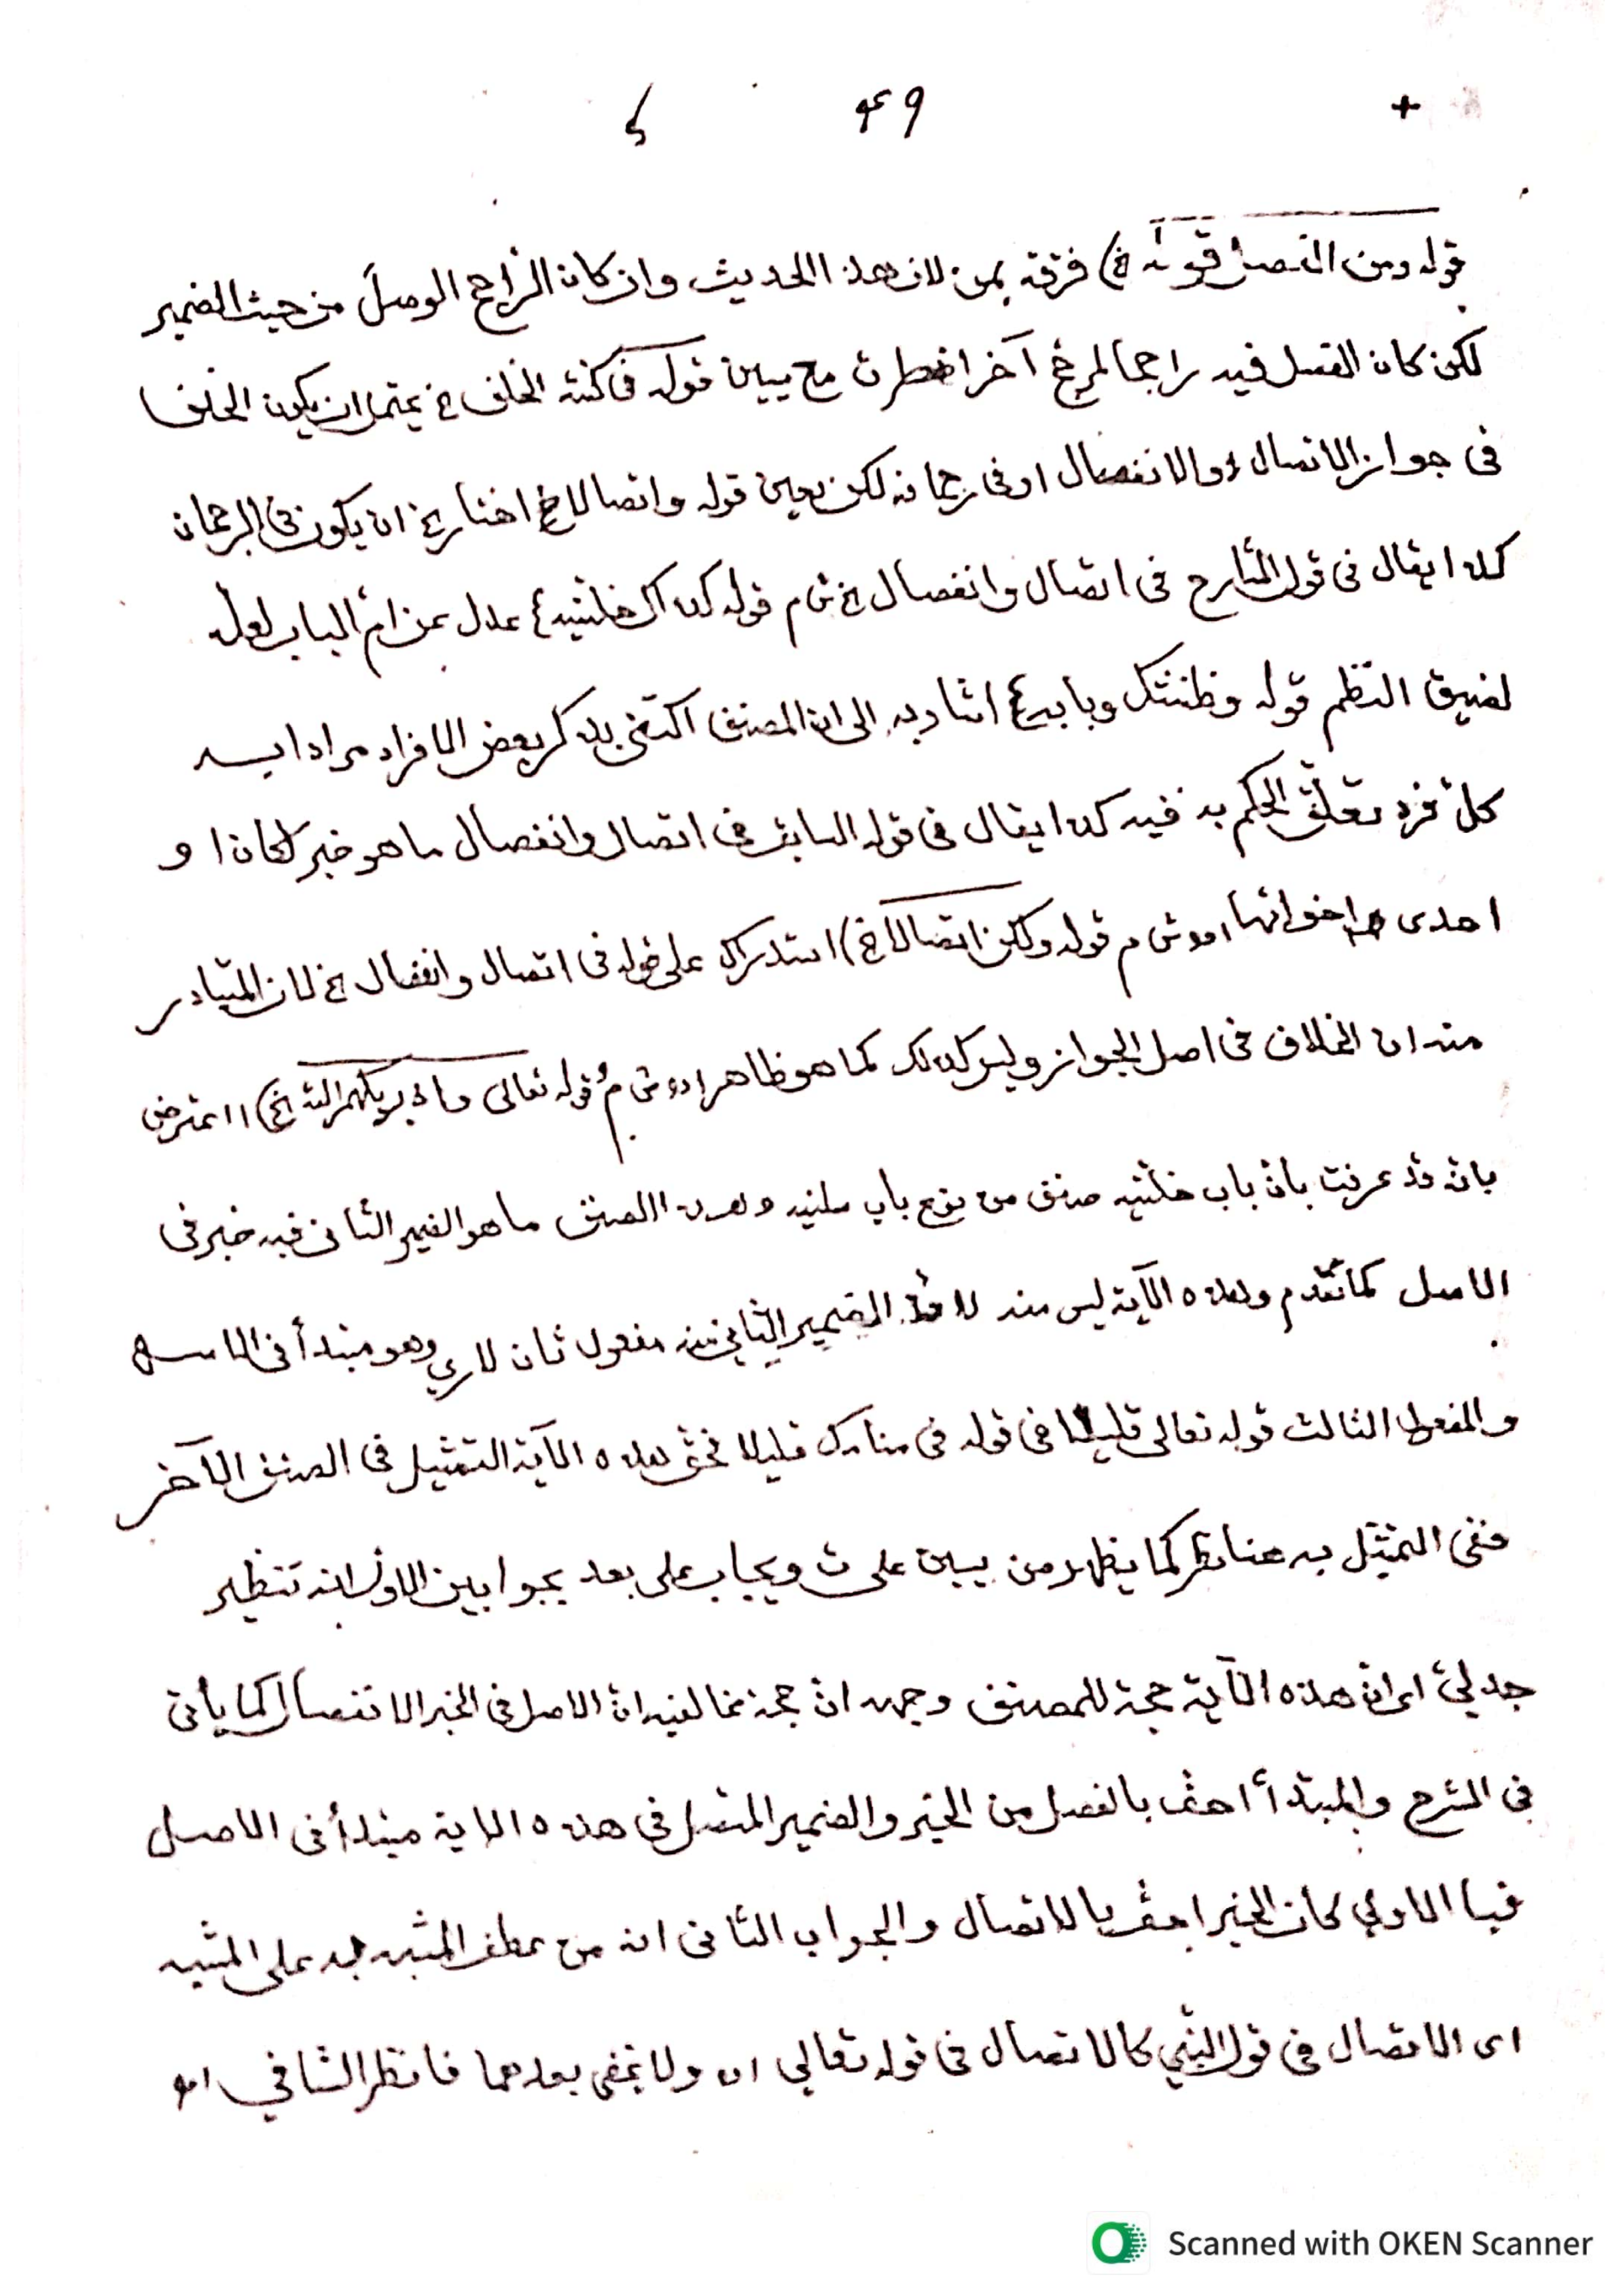 + ٤٩
قوله ومن الفصل قوله الخ) فرقه بمن لان هذا الحديث وان كان الراجح الوصل من حيث الضمير
لكن كان الفصل فيه راجحا لمرجح آخر قوله في كنته الخلف الخ يحتمل ان يكون الخلف
فى جواز الاتصال والانفصال او فى رجحانه لكن يعين قوله واتصالا الخ اختار الخ ان يكون فى الرجحان
كذا يقال فى قول الشارح فى اتصال وانفصال الخ ش م قوله كذاك خلتنيه ع عدل عن ام الباب لعله
لضيق النظم قوله وظننتك وبابه ع اشار به الى ان المصنف اكتفى بذكر بعض الافراد مرادا به
كل فرد تعلق الحكم به فيه كذا يقال فى قوله السابق فى اتصال وانفصال ما هو خبر لكان ا و
احدى اخواتها اه ش م قوله ولكن اتصالا الخ) استدراك على قوله فى اتصال وانفصال الخ لان المتبادر
منه ان الخلاف فى اصل الجواز وليس كذلك كما هو ظاهر اه ش م قوله تعالى ما اذ يريكهم الله الخ) اعترض
بانه قد عرفت بان باب خلتنيه صنف من نوع باب سلنيه وهذا الصنف ما هو الضمير الثانى فيه خبر فى
الاصل كما تقدم وهذه الآية ليس منه لان الضمير الثانى منه مفعول ثان لارى وهو مبتدأ فى الاصل
والمفعول الثالث قوله تعالى قليلا فى قوله فى منامك قليلا فحق هذه الآية التمثيل فى الصنف الآخر
ففى التمثيل به هنا نظر كما يظهر من يسين على ث ويجاب على بعد بجوابين الاول انه تنظير
جدلى اى ان هذه الآية حجة للمصنف وجهه ان حجة مخالفيه ان الاصل فى الخبر الانفصال كما يأتى
فى الشرح والمبتدأ احق بالفصل من الخبر والضمير المتصل فى هذه الاية مبتدأ فى الاصل
فبالاولى كان الخبر احق بالاتصال والجواب الثانى انه من عطف المشبه به على المشبه
اى الاتصال فى قول النبى كالاتصال فى قوله تعالى اه ولا يخفى بعدهما فانظر الشافي اه
Scanned with OKEN Scanner